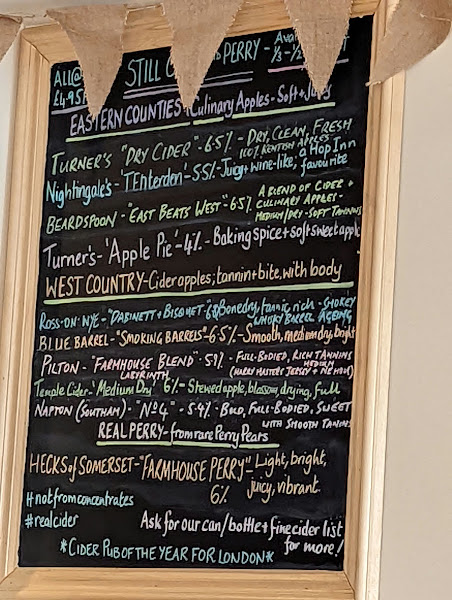 All@ STILL PERRY - Ava
£4.95 1/3-1/2
EASTERN COUNTIES - Culinary Apples - Soft + Juicy
TURNER'S "DRY CIDER" - 6.5% - DRY, CLEAN, FRESH
100% KENTISH APPLES -
Nightingale's - 'Tenterden' - 5.5% - Juicy + wine-like; a Hop Inn favourite
BEARDSPOON - "EAST BEATS WEST" - 6.5% A BLEND OF CIDER +
CULINARY APPLES -
MEDIUM/DRY - SOFT TANNINS
Turner's - 'Apple Pie' - 4% - Baking spice + soft sweet apple
WEST COUNTRY - Cider apples; tannin + bite, with body
ROSS-ON-WYE - "DABINETT + BISQUET" Bonedry, tannic, rich - SMOKEY
WHISKY BARREL AGEING
BLUE BARREL - "SMOKING BARRELS" - 6.5% - Smooth, medium dry, bright
PILTON - "FARMHOUSE BLEND" - 5.9% - FULL-BODIED, RICH TANNINS
LABYRINTH MEDIUM
(HARRY MASTERS JERSEY +
Temple Cider - 'Medium Dry' 6% - Stewed apple, blossom, drying, full
NAPTON (SOUTHAM) - "No 4" - 5.4% - BOLD, FULL-BODIED, SWEET
WITH SMOOTH TANNINS
REAL PERRY - from rare Perry Pears
HECKS of SOMERSET - "FARMHOUSE PERRY" - Light, bright,
6% juicy, vibrant
#notfromconcentrates
#realcider Ask for our can/bottle + fine cider list
for more!
*CIDER PUB OF THE YEAR FOR LONDON*